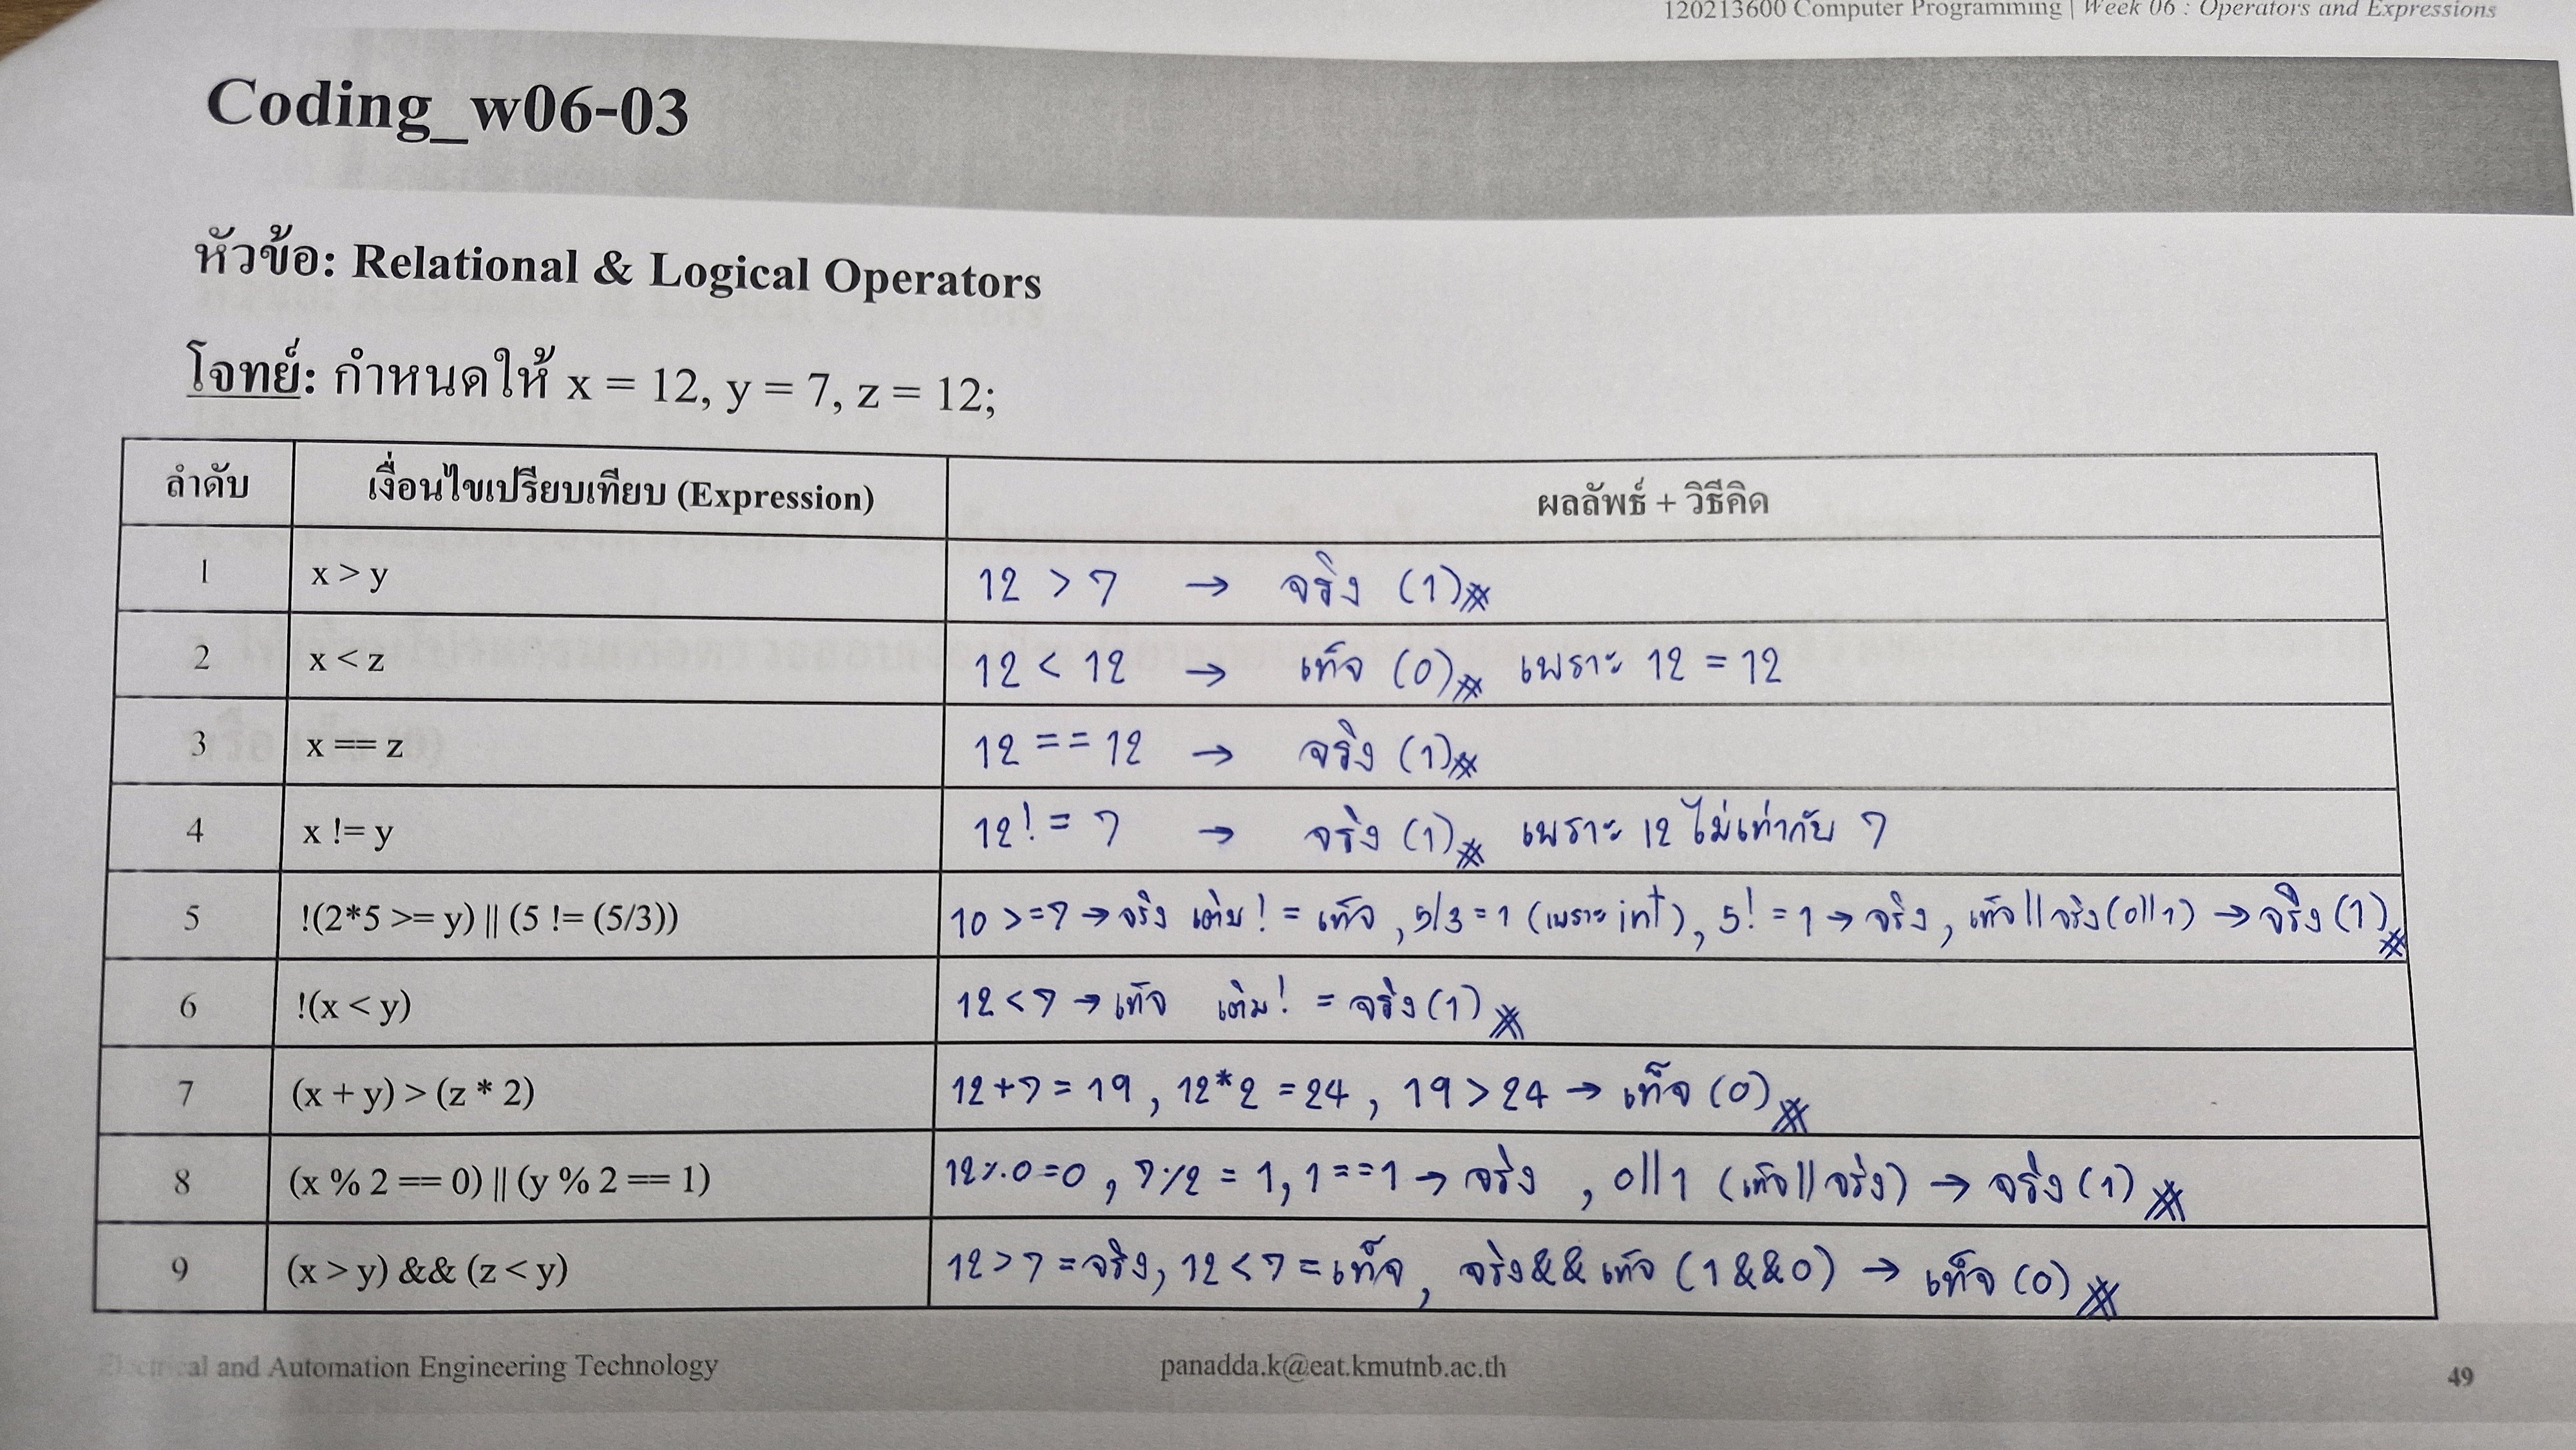 120213600 Computer Programming | Week 06 : Operators and Expressions
Coding_w06-03
หัวข้อ: Relational & Logical Operators
โจทย์: กำหนดให้ x = 12, y = 7, z = 12;
ลำดับ เงื่อนไขเปรียบเทียบ (Expression) ผลลัพธ์ + วิธีคิด
1 x > y 12 > 7 → จริง (1)
2 x < z 12 < 12 → เท็จ (0) เพราะ 12 = 12
3 x == z 12 == 12 → จริง (1)
4 x != y 12 != 7 → จริง (1) เพราะ 12 ไม่เท่ากับ 7
5 !(2*5 >= y) || (5 != (5/3)) 10 >= 7 → จริง เติม ! = เท็จ, 5/3 = 1 (เพราะ int), 5! = 1 → จริง, เท็จ||จริง (0||1) → จริง (1)
6 !(x < y) 12 < 7 → เท็จ เติม ! = จริง (1)
7 (x + y) > (z * 2) 12+7 = 19, 12*2 = 24, 19 > 24 → เท็จ (0)
8 (x % 2 == 0) || (y % 2 == 1) 12%0=0, 7%2 = 1, 1==1 → จริง, 0||1 (เท็จ||จริง) → จริง (1)
9 (x > y) && (z < y) 12 > 7 = จริง, 12 < 7 = เท็จ, จริง && เท็จ (1&&0) → เท็จ (0)
Electrical and Automation Engineering Technology panadda.k@eat.kmutnb.ac.th 49